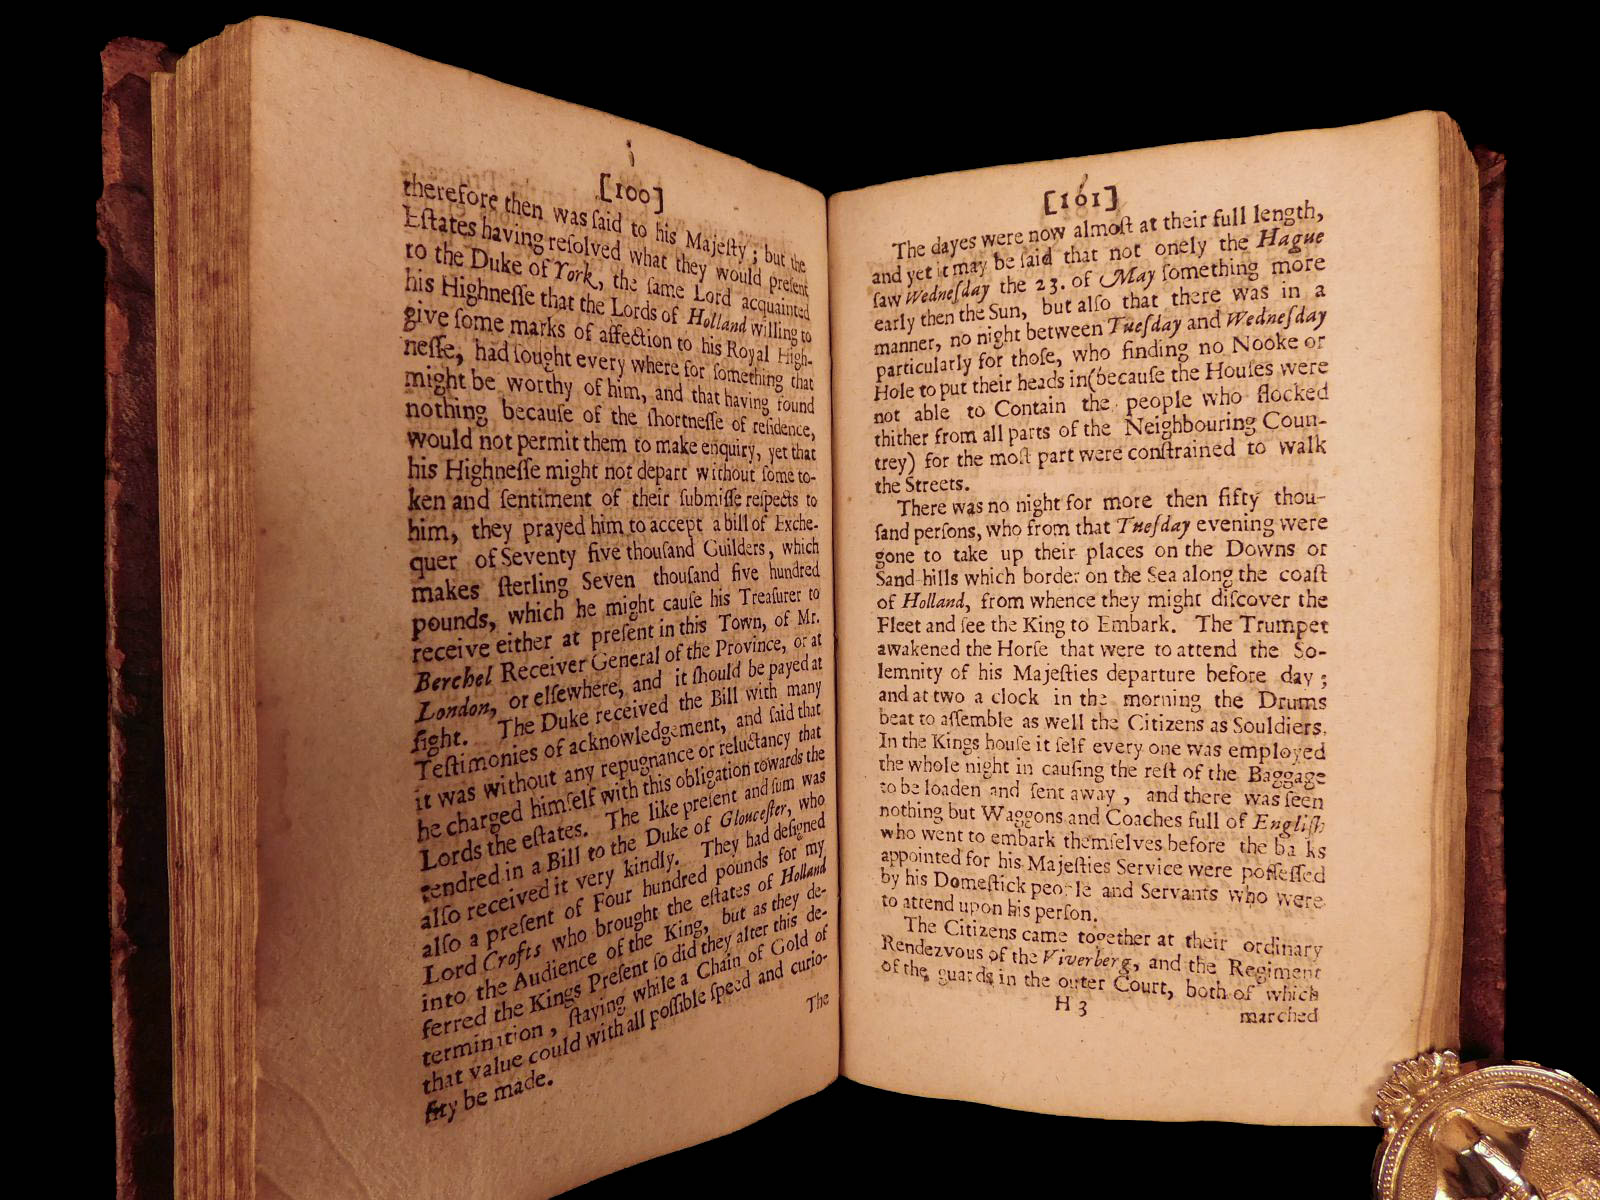 [100]
therefore then was ſaid to his Majeſty; but the
Eſtates having reſolved what they would preſent
to the Duke of York, the ſame Lord acquainted
his Highneſſe that the Lords of Holland willing to
give ſome marks of affection to his Royal High-
neſſe, had ſought every where for ſomething that
might be worthy of him, and that having found
nothing becauſe of the ſhortneſſe of reſidence,
would not permit them to make enquiry, yet that
his Highneſſe might not depart without ſome to-
ken and ſentiment of their ſubmiſſe reſpects to
him, they prayed him to accept a bill of Exche-
quer of Seventy five thouſand Guilders, which
makes ſterling Seven thouſand five hundred
pounds, which he might cauſe his Treaſurer to
receive either at preſent in this Town, of Mr.
Berchel Receiver General of the Province, or at
London, or elſewhere, and it ſhould be payed at
ſight. The Duke received the Bill with many
Teſtimonies of acknowledgement, and ſaid that
it was without any repugnance or reluctancy that
he charged himſelf with this obligation towards the
Lords the eſtates. The like preſent and ſum was
tendred in a Bill to the Duke of Glouceſter, who
alſo received it very kindly. They had deſigned
alſo a preſent of Four hundred pounds for my
Lord Crofts who brought the eſtates of Holland
into the Audience of the King, but as they de-
ferred the Kings Preſent ſo did they alter this de-
termination, ſtaying while a Chain of Gold of
that value could with all poſſible ſpeed and curio-
ſity be made.
The
[161]
The dayes were now almoſt at their full length,
and yet it may be ſaid that not onely the Hague
ſaw Wedneſday the 23. of May ſomething more
early then the Sun, but alſo that there was in a
manner, no night between Tueſday and Wedneſday
particularly for thoſe, who finding no Nooke or
Hole to put their heads in (becauſe the Houſes were
not able to Contain the people who flocked
thither from all parts of the Neighbouring Coun-
trey) for the moſt part were conſtrained to walk
the Streets.
There was no night for more then fifty thou-
ſand perſons, who from that Tueſday evening were
gone to take up their places on the Downs or
Sand-hills which border on the Sea along the coaſt
of Holland, from whence they might diſcover the
Fleet and ſee the King to Embark. The Trumpet
awakened the Horſe that were to attend the So-
lemnity of his Majeſties departure before day;
and at two a clock in the morning the Drums
beat to aſſemble as well the Citizens as Souldiers.
In the Kings houſe it ſelf every one was employed
the whole night in cauſing the reſt of the Baggage
to be loaden and ſent away, and there was ſeen
nothing but Waggons and Coaches full of Engliſh
who went to embark themſelves before the ba ks
appointed for his Majeſties Service were poſſeſſed
by his Domeſtick people and Servants who were
to attend upon his perſon.
The Citizens came together at their ordinary
Rendezvous of the Viverberg, and the Regiment
of the guards in the outer Court, both of which
H 3
marched